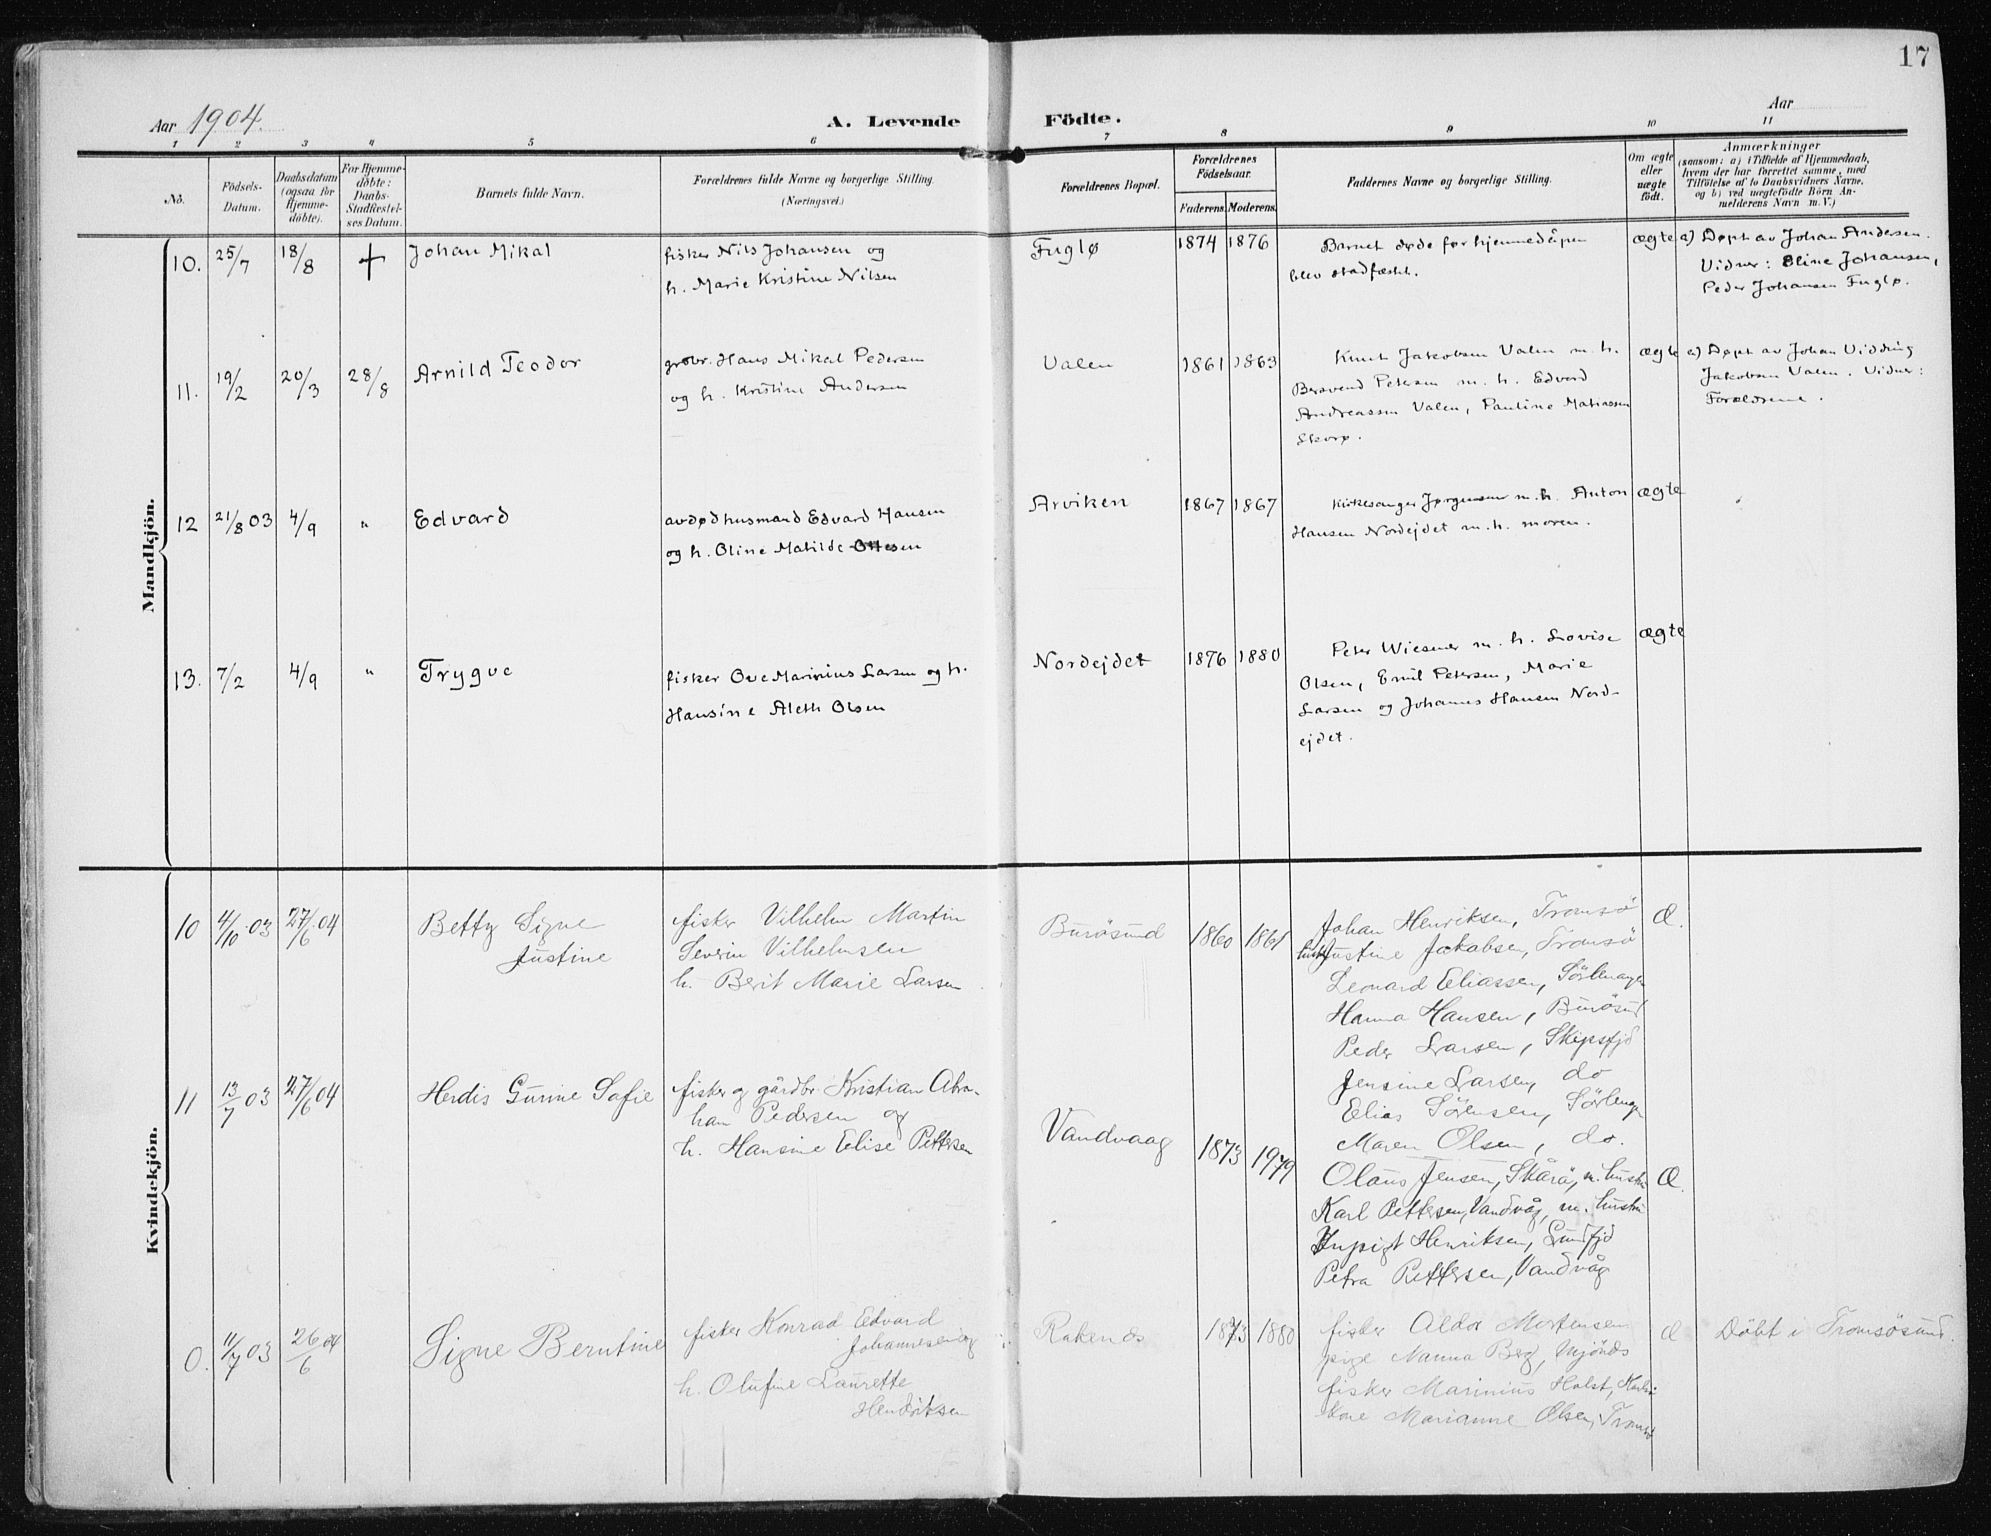 17
Aar 1904.
A. Levende Födte.
Aar
1 2 3 4 5 6 7 8 9 10 11
No.
Födsels-Datum.
Daabsdatum (ogsaa for Hjemme-döbte).
For Hjemme-döbte: Daabs-Stadfestel-ses Datum.
Barnets fulde Navn.
Forældrenes fulde Navne og borgerlige Stilling.
(Næringsvei.)
Forældrenes Bopæl.
Forældrenes Födselsaar.
Faderens. Moderens.
Faddernes Navne og borgerlige Stilling.
Om ægte eller uægte födt.
Anmærkninger
(saasom: a) i Tilfælde af Hjemmedaab,
hvem der har forrettet samme, med
Tilföielse af to Daabsvidners Navne,
og b) ved uægtefödte Börn An-
melderens Navn m. V.)
Mandkjön.
10. 25/7 18/8 + Johan Mikal
fisker Nils Johansen og
h. Marie Kristine Nilsen
Fuglø 1874 1876
Barnet døde før hjemmedåpen
blev stadfæstet.
ægte
a) Døpt av Johan Andersen.
Vidner: Oline Johansen,
Peder Johansen Fuglø.
11. 19/2 20/3 28/8 Arnild Teodor
grdbr. Hans Mikal Pedersen
og h. Kristine Andersen
Valen 1861 1863
Knut Jakobsen Valen m. h.
Bersvend Petersen m. h. Edvard
Andreassen Valen, Pauline Matiassen
Skorø.
ægte
a) Døpt av Johan Vidding
Jakobsen Valen. Vidner:
Forældrene.
12 21/8 03 4/9 " Edvard
avdød husmand Edvard Hansen
og h. Oline Matilde Ottesen
Arviken 1867 1867
Kirkesanger Jørgensen m. h. Anton
Hansen Nordejdet m. h. moren.
ægte
13. 7/2 4/9 " Trygve
fisker Ove Marinius Larsen og h.
Hansine Aleth Olsen
Nordejdet 1876 1880
Peter Wiesener m. h. Lovise
Olsen, Emil Petersen, Marie
Larsen og Johannes Hansen Nord-
ejdet.
ægte
Kvindekjön.
10 4/10 03 27/6 04 Betty Signe
Justine
fisker Vilhelm Martin
Severin Vilhelmsen
h. Berit Marie Larsen
Burösund 1860 1861
Johan Henriksen, Tromsö
Justine Jakobsen, Tromsö
Leonard Eliassen, Sörlenangen
Hanna Hansen, Burösund
Peder Larsen, Skipsfjd
Jensine Larsen, do
Elias Sörensen, Sörlenangen
Maren Olsen, do.
Æ.
11 13/7 03 27/6 04 Herdis Gunne Sofie
fisker og gårdbr. Kristian Abra-
ham Pedersen og
h. Hansine Elise Pettersen
Vandvaag 1873 1979
Olaus Jensen, Skårö, m. hustru
Karl Pettersen, Vandvåg, m. hustru
Henriksen, Lundfjd
Petra Pettersen, Vandvåg
Æ.
0. 11/7 03 26/6 04 Signe Berntine
fisker Konrad Edvard
Johannesen og
h. Olufine Laurette
Hendriksen
Rakenes 1873 1880
fisker Aldor Mortensen
pige Nanna Berg, Mjönäs
fisker Marinius Holst,
kone Marianne Olsen, Tromsö
Æ
Döbt i Tromsösund.